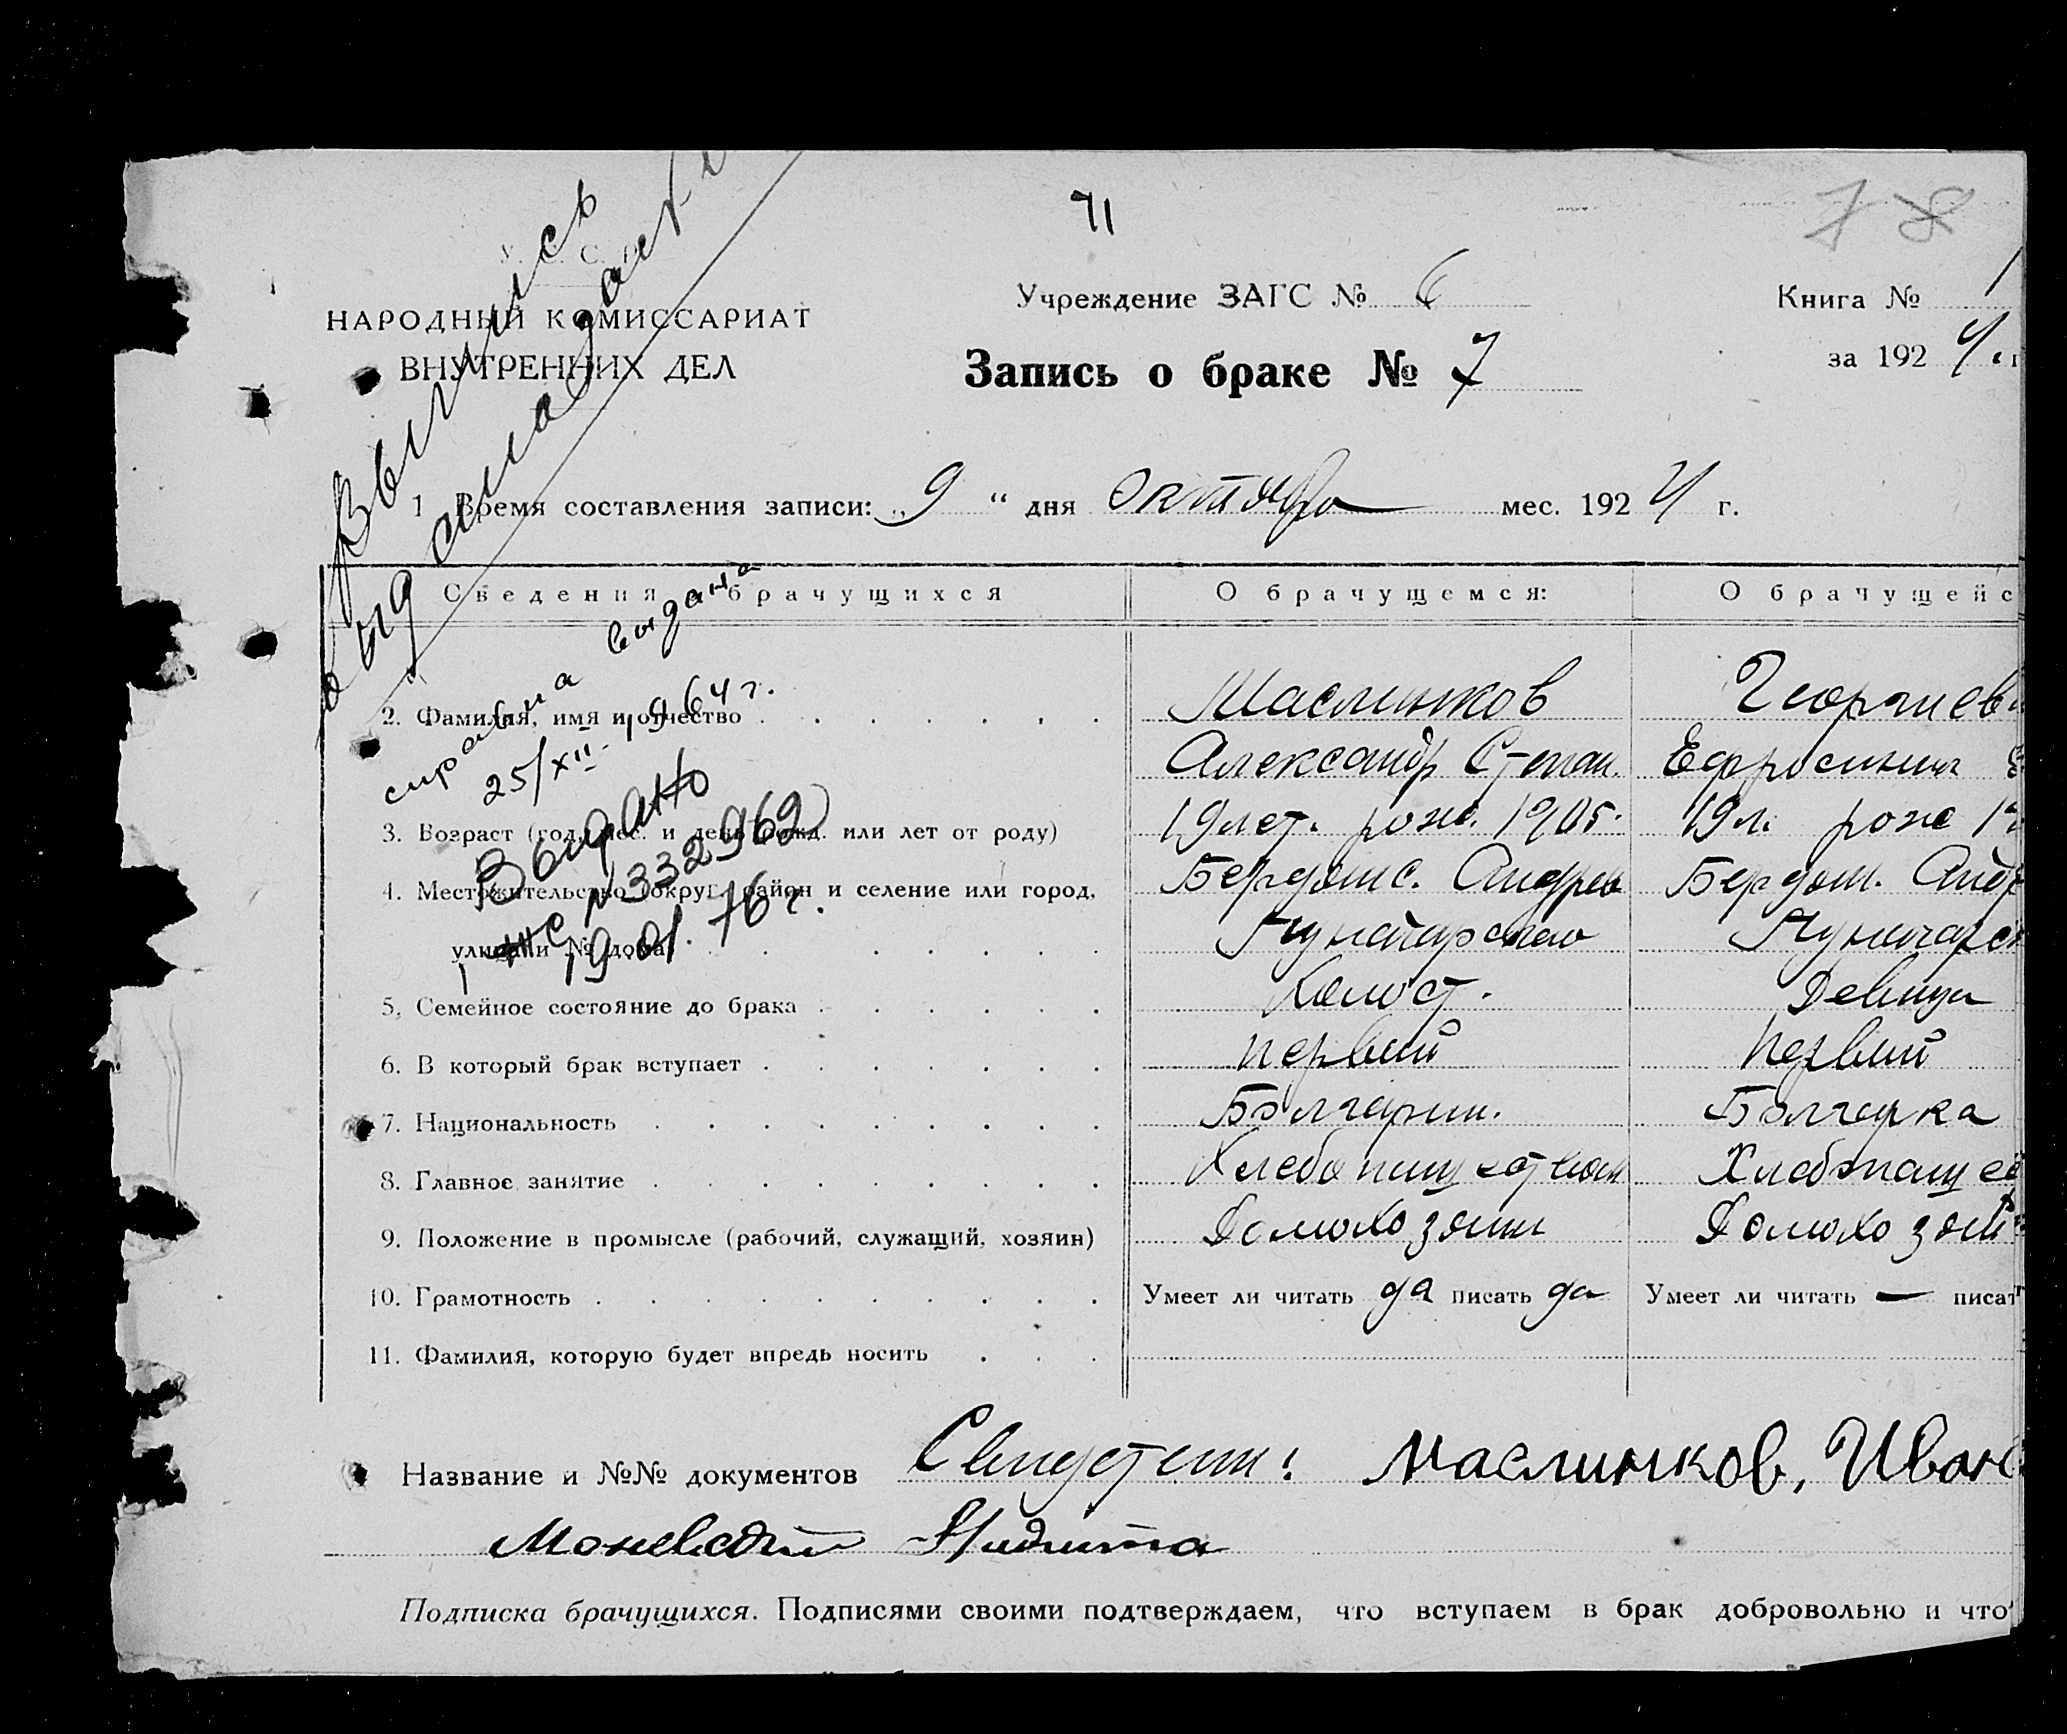 71
7 8
У. С. С. Р.
НАРОДНЫЙ КОМИССАРИАТ
ВНУТРЕННИХ ДЕЛ
Учреждение ЗАГС № 6
Книга № 1
Запись о браке № 7
за 1924 г
Выпись
выдана
1 Время составления записи: „ 9 “ дня Октября мес. 1924 г.
Сведения брачущихся О брачущемся: О брачущейс
справка выдана
25/XII- 1964 г.
2. Фамилия, имя и отчество Маслинков Георгиев
Александр Степан. Ефросиния
3. Возраст (год, мес. и день рожд. или лет от роду) 19 лет. рож. 1905. 19 л. рож 1
Выдано
№ 332962
19.01.76 г.
4. Местожительство (округ, район и селение или город, Бердянс. Андрев Бердян. Андр
улица и № дома)
5. Семейное состояние до брака Холост. Девица
6. В который брак вступает первый первый
7. Национальность Болгарин. Болгарка
8. Главное занятие Хлебопашеством Хлебопаш
9. Положение в промысле (рабочий, служащий, хозяин) Домохозяин Домохозяй
10. Грамотность Умеет ли читать да писать да Умеет ли читать — писат
11. Фамилия, которую будет впредь носить
Название и №№ документов Свидетели: Маслинков, Иван
Никита
Подписка брачущихся. Подписями своими подтверждаем, что вступаем в брак добровольно и что